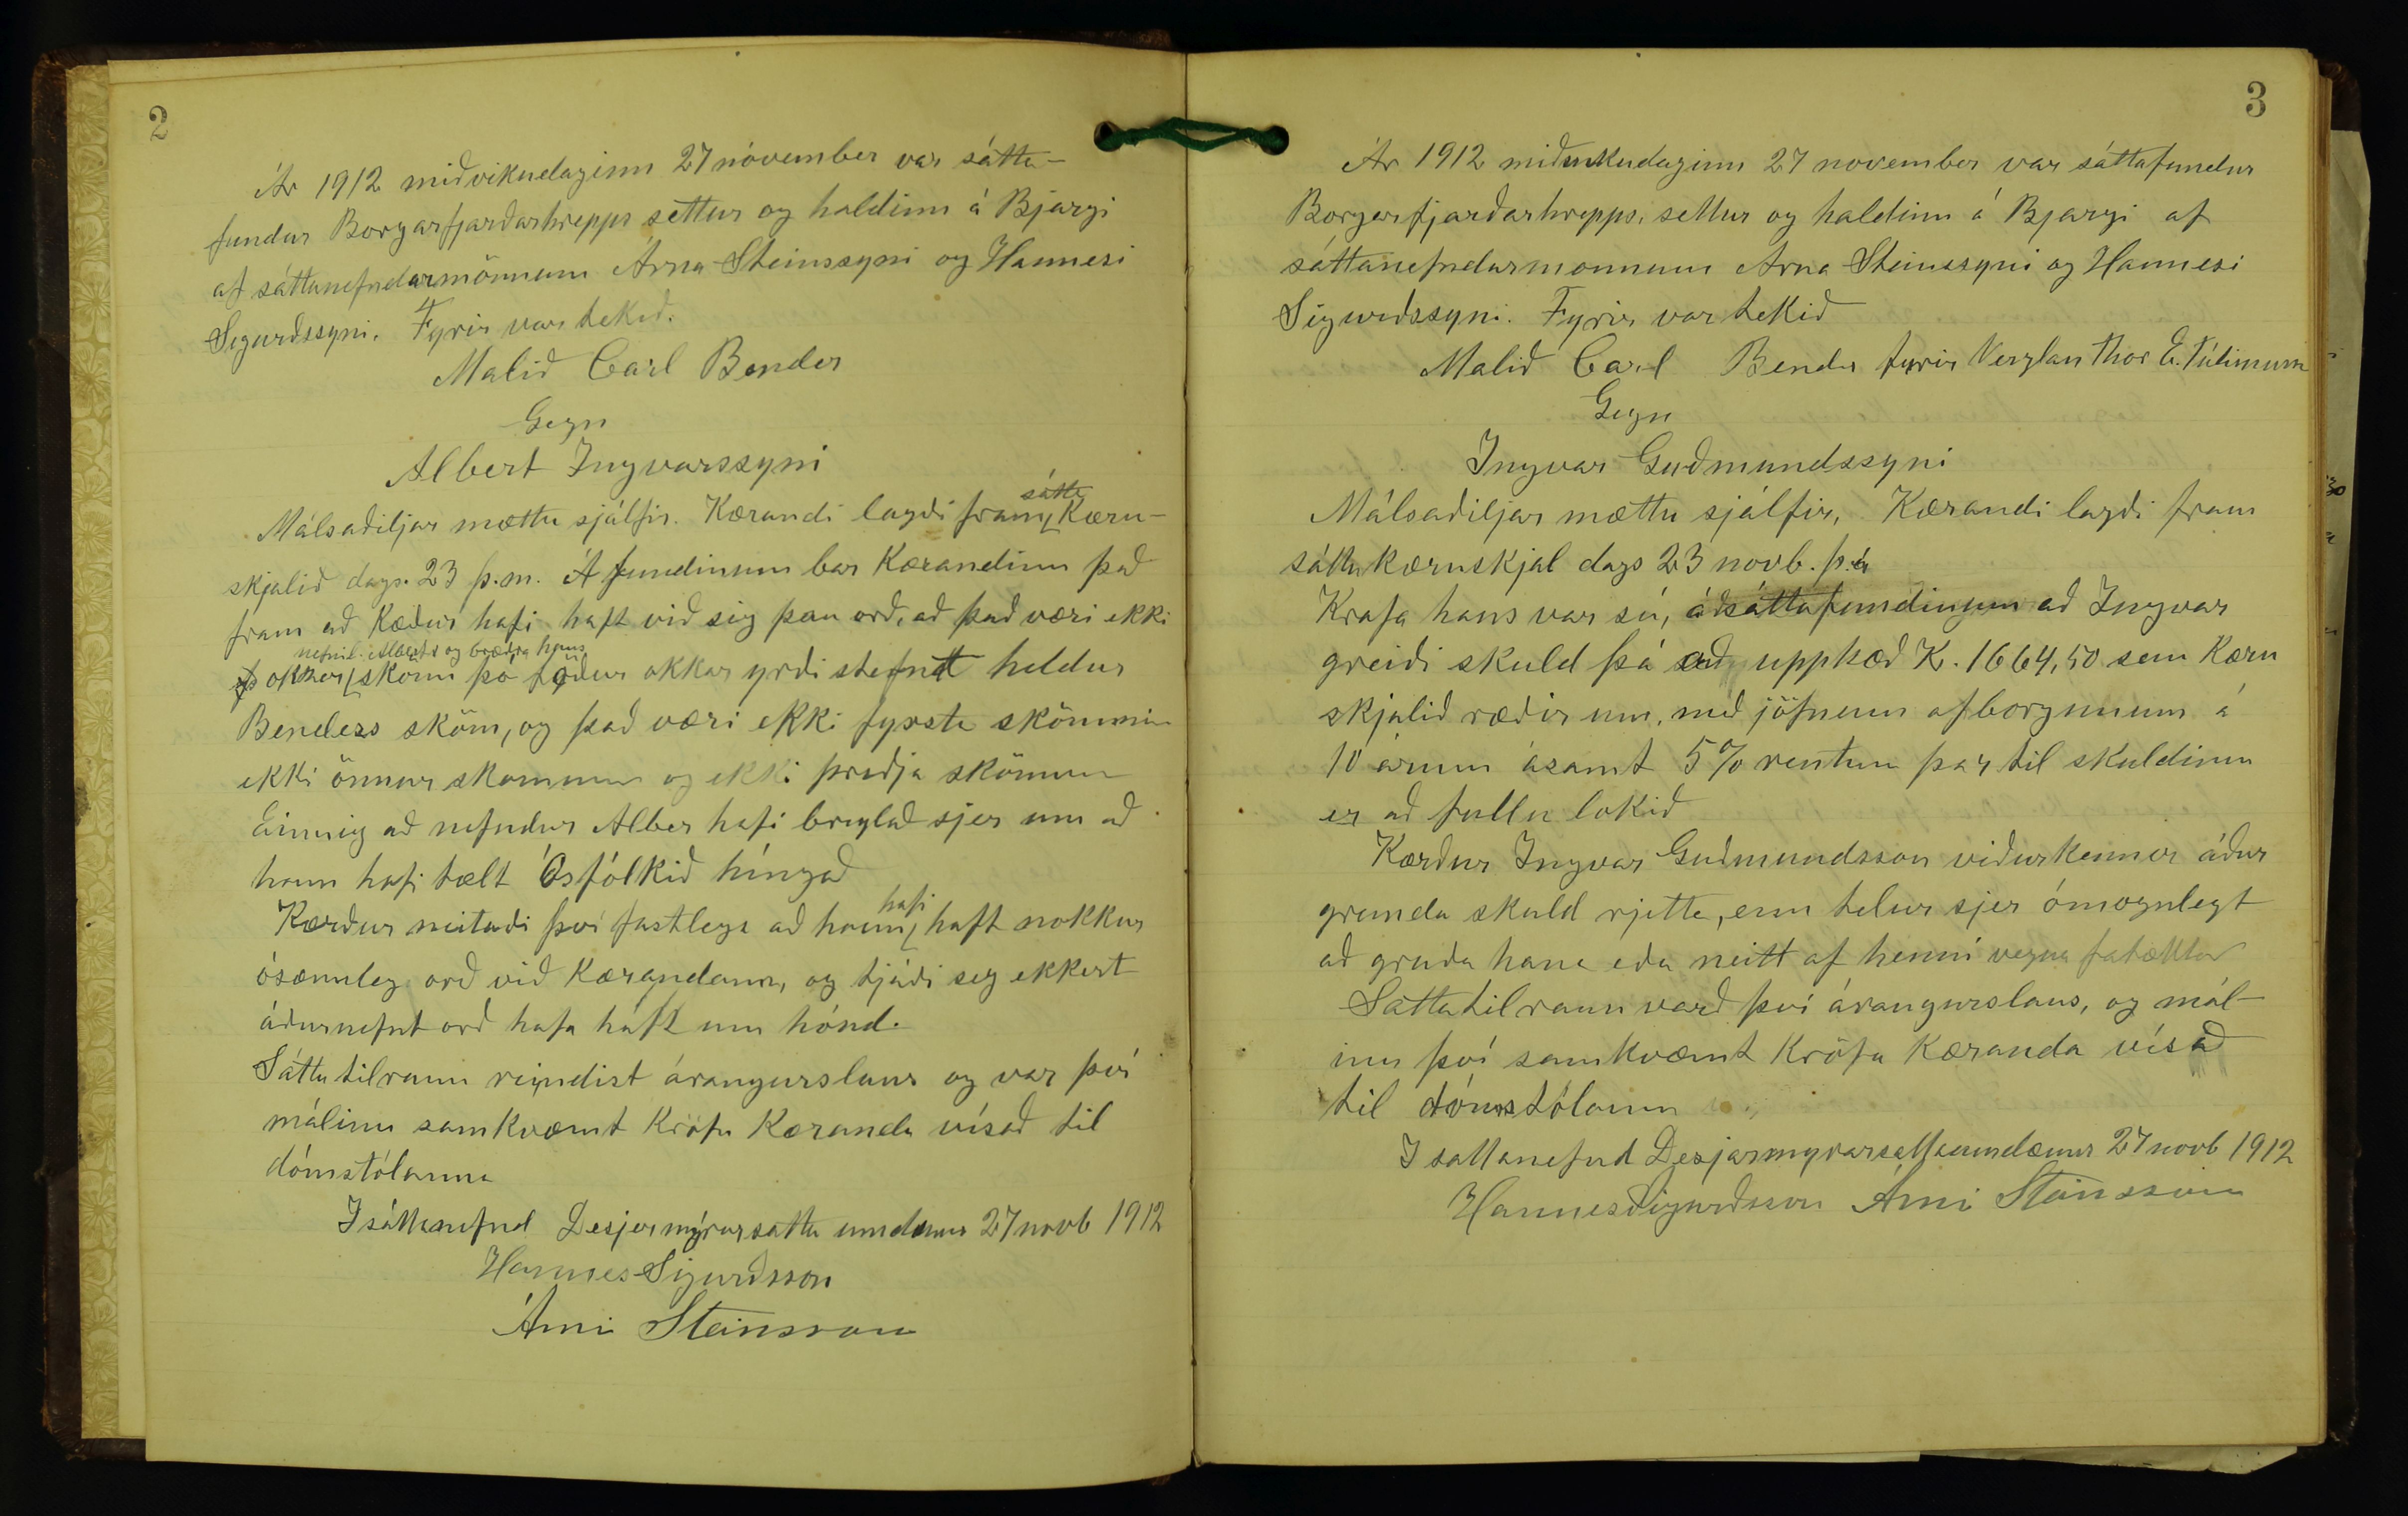 2
Ár 1912 miðvikudaginn 27 nóvember var sátta-
fundur Borgarfjarðarhrepps settur og haldinn á Bjargi
af sáttanefndarmönnum Árna Steinssyni og Hannesi
Sigurðssyni. Fyrir var tekið.
Malið Carl Bender
Gegn
Albert Ingvarssyni
Málsaðiljar mættu sjálfir. Kærandi lagði fram sátta Kæru-
skjalið dags. 23 þ.m. Á fundinum bar Kærandinn það
fram að Kæður hafi haft við sig þau orð, að það væri ekki
okkar nefnil. Alberts og bræðra hans skömm þó föður okkar yrði stefnt heldur
Benders sköm, og það væri ekki fyrsta skömmin
ekki önnur skömmin og ekki þriðja skömmin
Einnig að nefndur Alber hafi bryglað sjer um að
hann hafi tælt Ósfólkið hingað
Kærður neitaði því fastlega að hann hafi haft nokkur
ósæmileg orð við Kærandann, og tjáði sig ekkert
áðurnefnt orð hafa haft um hönd.
Sáttatilraun reindist árangurslaus og var því
málinu samkvæmt kröfu Kæranda vísað til
dómstólanna
I sáttanefnd Desjarmýrarsátta umdæmis 27 novb 1912
Hannes Sigurðsson
Árni Steinsson
3
Ár 1912 miðvikudaginn 27 november var sáttafundur
Borgarfjarðarhrepps, settur og haldinn á Bjargi af
sáttanefndarmonnum Árna Steinssyni og Hannesi
Sigurðssyni. Fyrir var tekið
Malið Carl Bender fyrir Verzlan Thor E. Túlinius
Gegn
Ingvar Guðmundssyni
Málsaðiljar mættu sjálfir, Kærandi lagði fram
sáttakæruskjal dags 23 novb. þ.á
Krafa hans var sú, á sáttafundinum að Ingvar
greiði skuld þá að upphæð K. 1664,50 sem Kæru
skjalið ræðir um, með jöfnum afborgunum á
10 árum ásamt 5% rentum þar til skuldinni
er að fullu lokið
Kærður Ingvar Guðmundsson viðurkennir áður
greinda skuld rjetta, enn telur sjer ómögulegt
að greiða hana eða neitt af henni vegna fatæktar
Sáttatilraun varð því árangurslaus, og mál-
inu því samkvæmt Kröfu Kæranda vísað
til dómstólanna
I sattanefnd Desjarmyrarsattaumdæmis 27 novb 1912
Hannes Sigurðsson Árni Steinsson